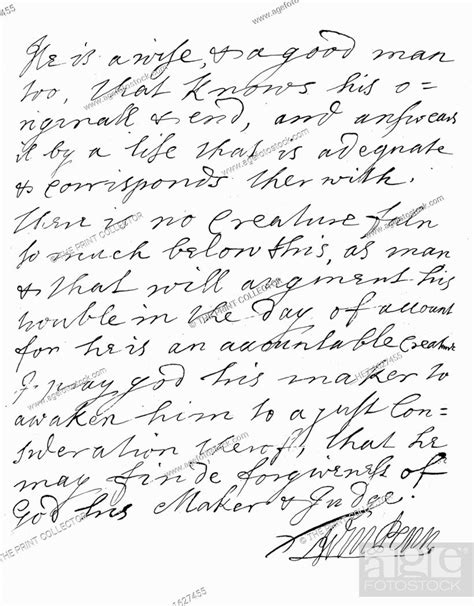 He is a wise, & a good man
too, that knows his o-
riginall & end, and answears
it by a life that is adequate
& corrisponds therwith.
There is no Creature faln
so much below this, as man
& that will augment his
trouble in the day of account
for he is an accountable Creature
I pray god his maker to
awaken him to a just Con-
sideration therof, that he
may finde forgiveness of
God his Maker & Judge.
Wm Penn
www.agefotostock.com
THE PRINT COLLECTOR
HEZ-1627455
age
FOTOSTOCK